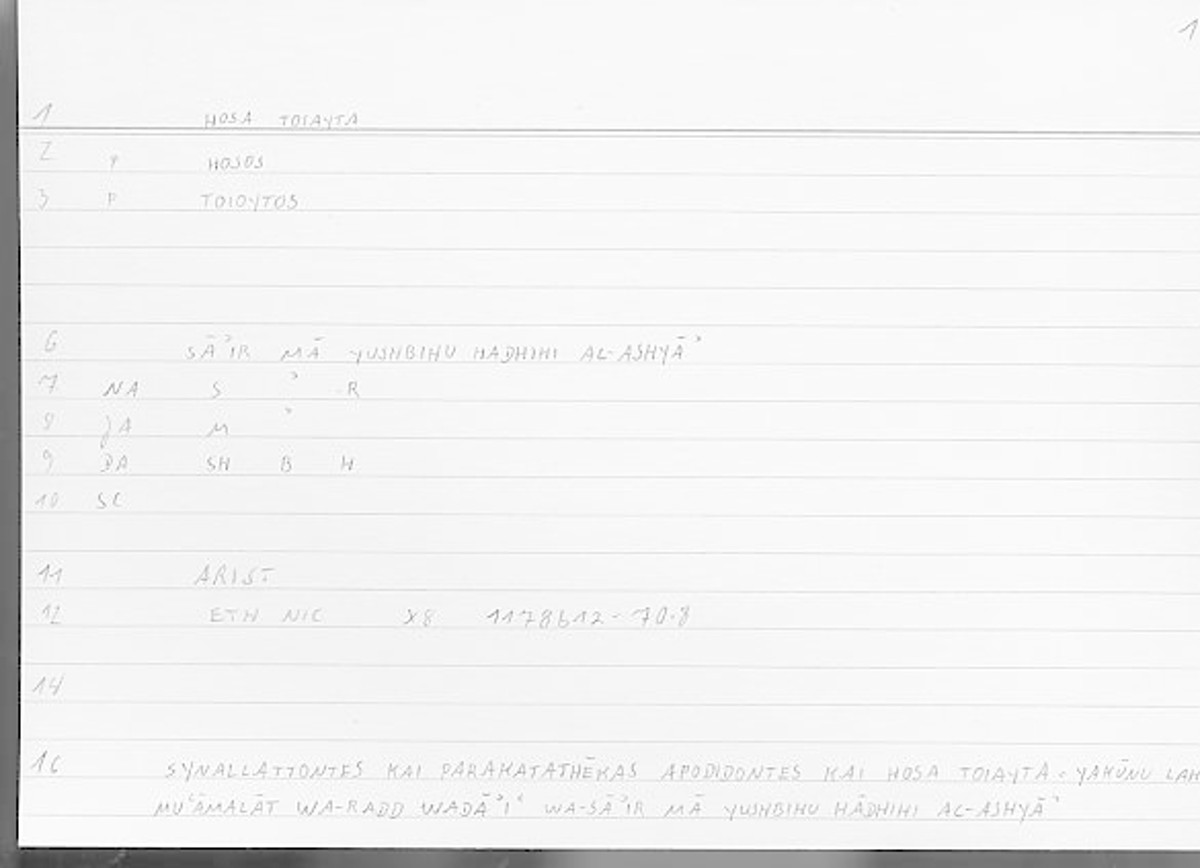 1
1 HOSA TOIAYTA
2 P HOSOS
3 P TOIOYTOS
6 SĀʾIR MĀ YUSHBIHU HĀDHIHI AL-ASHYĀʾ
7 NA S ʾ R
8 JA M ʾ
9 DA SH B H
10 SC
11 ARIST
12 ETH NIC X8 1178b12-70.8
14
16 SYNALLATTONTES KAI PARAKATATHĒKAS APODIDONTES KAI HOSA TOIAYTA : YAKŪNU LAH
MUʿĀMALĀT WA-RADD WADĀʾIʿ WA-SĀʾIR MĀ YUSHBIHU HĀDHIHI AL-ASHYĀʾ